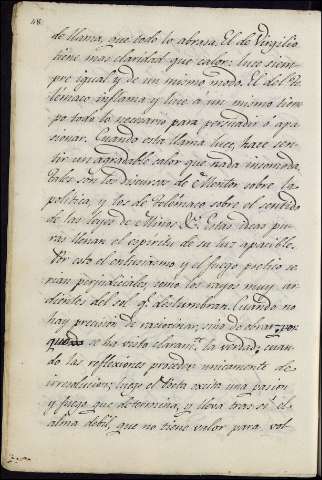 48.
de llama, que todo lo abrasa. El de Virgilio
tiene mas claridad que calor: luce siem-
pre igual y de un mismo modo. El del Te-
lémaco inflama y luce a un mismo tiem-
po todo lo necesario para persuadir ó apa-
sionar. Cuando esta llama luce, hace sen-
tir un agradable calor que nada incomoda.
Tales son los discursos de Mentor sobre la
política, y los de Telémaco sobre el sentido
de las leyes de Minos &c. Estas ideas pu-
ras llenan el espíritu de su luz apacible.
Por esto el entusiasmo y el fuego poético se-
rian perjudiciales, como los rayos muy ar-
dientes del sol q.e deslumbran. Cuando no
hay precision de raciocinar, sino de obrar, por-
que se ha visto claram.te la verdad; cuan-
do las reflexiones proceden unicamente de
irresolucion; luego el Poeta excita una pasion
y fuego que determina, y lleva tras sí el
alma debil, que no tiene valor para